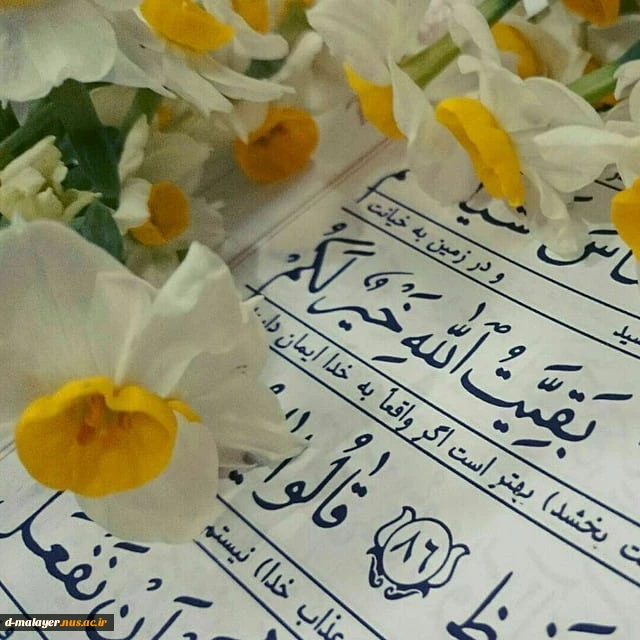 و در زمین به خیانت
بَقِيَّتُ اللَّهِ خَيْرٌ لَكُمْ
بخشد) بهتر است اگر واقعاً به خدا ایمان
قَالُوا
۸۶
عذاب خدا) نیستم
أَنْ نَفْعَلَ
d-malayer.nus.ac.ir